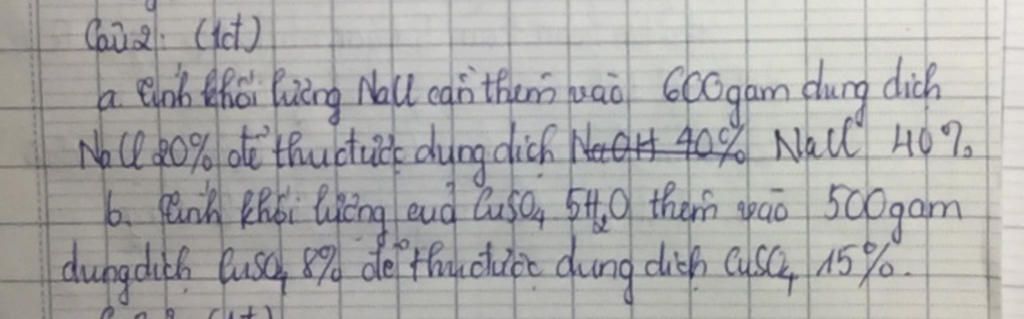 Câu 2: (1đ)
a. Tính khối lượng NaCl cần thêm vào 600gam dung dịch
NaCl 20% để thu được dung dịch NaOH 40% NaCl 40%
b. Tính khối lượng của CuSO4 5H2O thêm vào 500gam
dung dịch CuSO4 8% để thu được dung dịch CuSO4 15%.